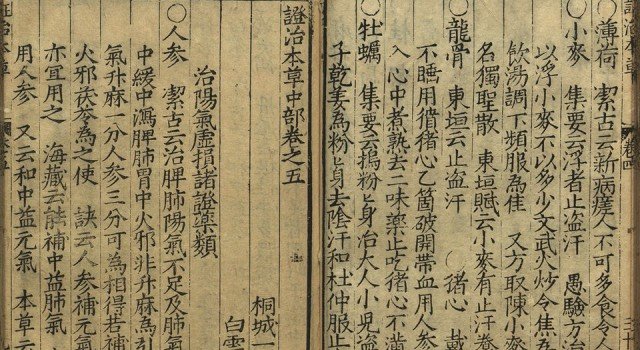 證治本草 卷四
○薄荷 潔古云新病瘥人不可多食令人
○小麥 集要云浮者止盜汗 愚驗方治
以浮小麥不以多少文武火炒令焦為
飲湯調下頻服為佳 又方取陳小麥
名獨聖散 東垣賦云小麥有止汗養
○龍骨 東垣云止盜汗 ○猪心 戴
不睡用猪心乙箇破開帶血用人參
入心中煮熟去二味藥止吃猪心不滿
○牡蠣 集要云搗粉身治大人小兒盜
子乾姜為粉身去陰汗和杜仲服止
證治本草中部卷之五
桐城一
白雲
治陽氣虛損諸證藥類
○人參 潔古云治脾肺陽氣不足及肺氣
中緩中瀉脾肺胃中火邪非升麻為引
氣升麻一分人參三分可為相得若補
火邪茯苓為之使 訣云人參補元氣
亦宜用之 海藏云能補中益肺氣
用人參 又云和中益元氣 本草云
證治本草